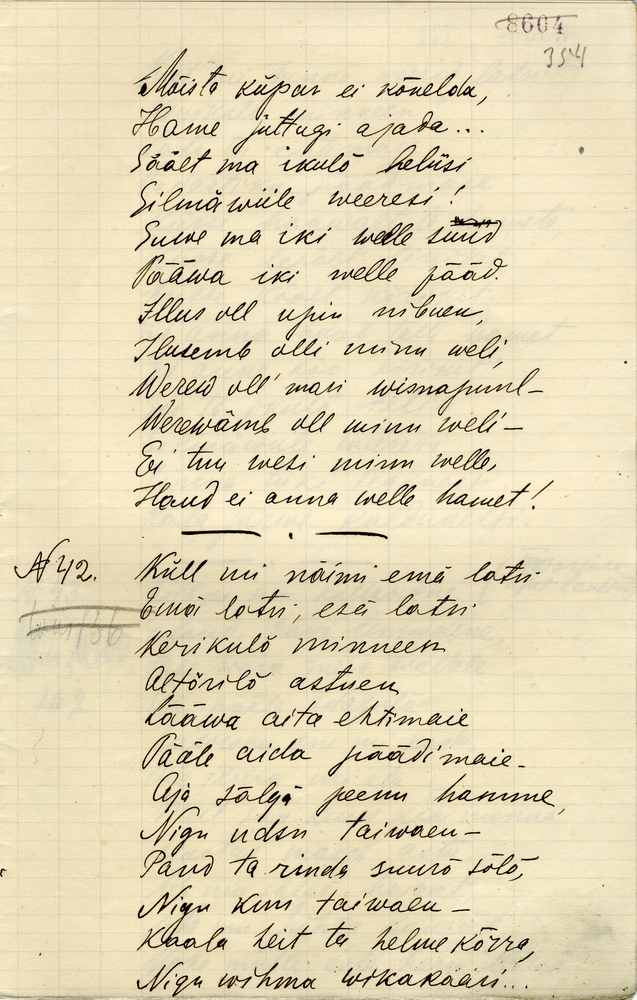 8604
354
Mõista küpär ei kõnelda,
Hame juttugi ajada...
Säält ma ikulõ helüsi
Silmäwiile weeresi!
Suwe ma iki welle suud
Pääwä iki welle pääd.
Illus oll upin nibuen,
Ilusemb olli minu weli,
Werew oll' mari wisnapuul–
Werewämb oll minu weli–
Ei tuu wesi minu welle,
Haud ei anna welle hamet!
N 42.
Küll mi näimi emä latsi
Emä latsi, esä latsi
Kerikulõ minneen
Altõrilõ astuen
Lääwä aita ehtimaie
Pääle aida päädimaie–
Aja sälgä peenu hamme,
Nigu udsu taiwaen–
Pand ta rinda suurõ sõlõ,
Nigu kuu taiwaen–
Kaala heit ta helme kõrra,
Nigu wihma wikakaari...